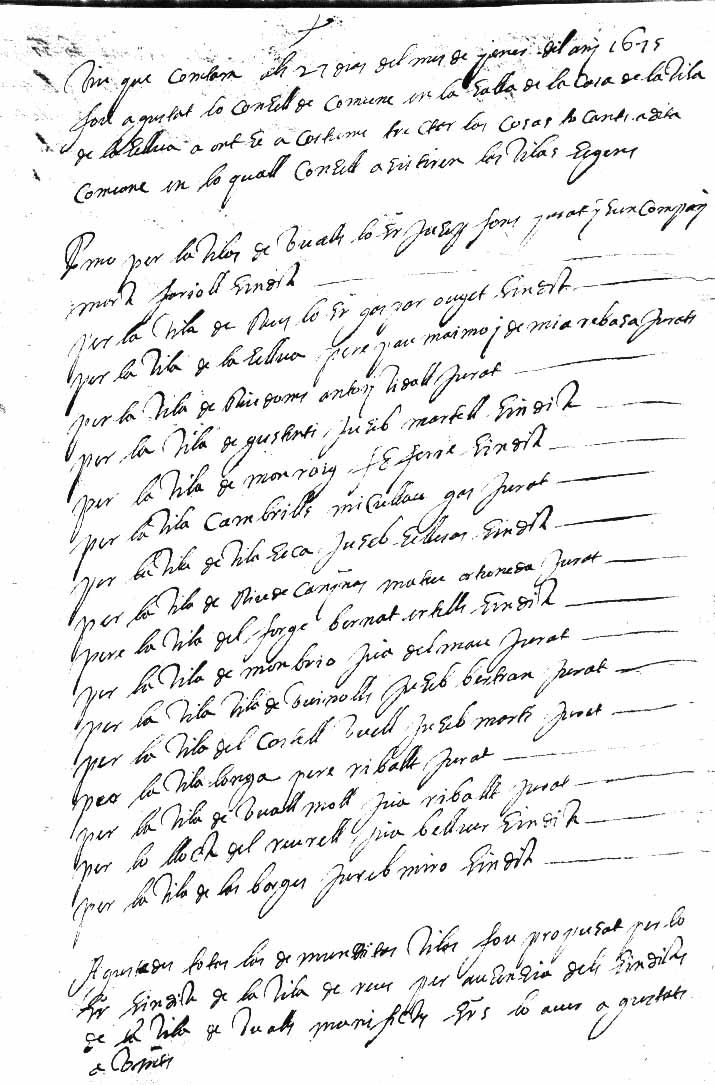 Vui que contam als 27 dias del mes de janer del any 1675
fou agustat lo Consell de Comune en la Salla de la Casa de la Vila
de la Sellva a ont se a costuma tractar las Cosas to cants a dita
Comune en lo quall Consell asistiren las Vilas segens
Pmo per la Vila de Vualls lo Sr Jusep fons jurat y lo un
mora forioll Sindich
per la Vila de Reus lo Sr gaspar ouget Sindich
per la Vila de la Sellva pere pau maimo y de mia rebasa Jurats
per la Vila de Riudoms antoy Vidall Jurat
per la Vila de gustanti Juseb martell Sindich
per la Vila de monroig fe ferre Sindich
per la Vila Cambrills micullau gas Jurat
per la Vila de Vila Seca Juseb Sellvas Sindich
per la Vila de Riudecanyas mateu ortoneda Jurat
pere la Vila del forge bernat ortells Sindich
per la Vila de monbrio Jua delmau Jurat
per la Vila Vila de Vuinolls Juseb bertran Jurat
per la Vila del Castell Vuell Juseb marti Jurat
per la Vilalonga pere riballt Jurat
per la Vila de Vuall moll Jua riballt Jurat
per lo lloch del rourell Jua bellver Sindich
per la Vila de las borges Juseb miro Sindich
Agustades totas las de munditas Vilas fou propusat per lo
Sr Sindich de la Vila de reus per ausensia dels Sindichs
de la Vila de Vualls munifichs Srs lo aver a gustats
a Vms